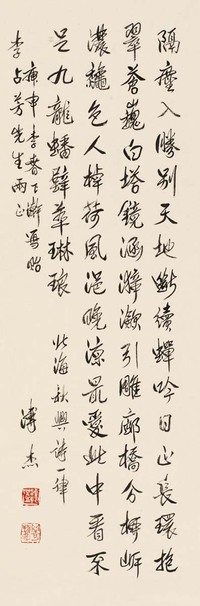 隔塵入勝別天地斷續蟬吟日正長環抱
翠薈巍白塔鏡涵引雕廊橋分岸
濃纖色人棹荷風浥晚涼最愛此中看不
足九龍蟠壁萃琳琅 北海秋興詩一律
庚申季春下澣寫貽
李占芳先生兩正 溥杰